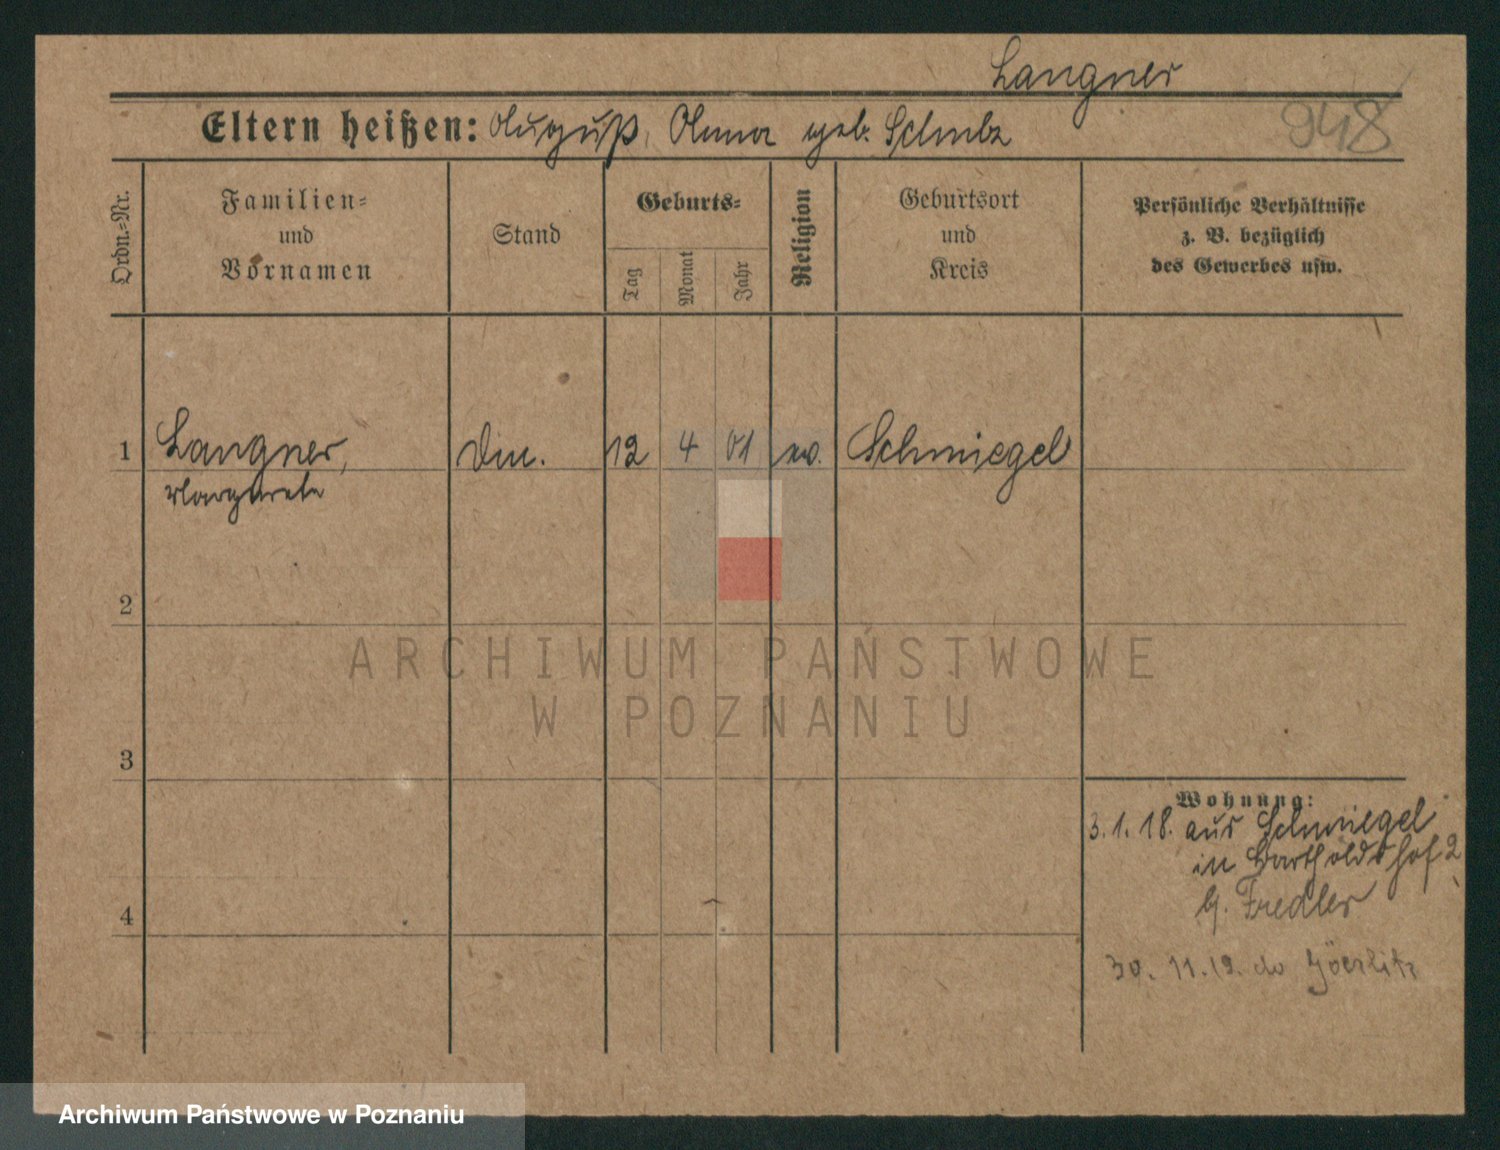 Langner
948
Eltern heißen: August, Anna geb. Schulz
Ordn.-Nr.
Familien-
und
Vornamen
Stand
Geburts-
Tag
Monat
Jahr
Religion
Geburtsort
und
Kreis
Persönliche Verhältnisse
z. B. bezüglich
des Gewerbes usw.
1 Langner, 12 4 01 ev. Schmiegel
Margarete
2
3
4
Wohnung:
3. 1. 18. aus Schmiegel
in Bartholdshof 2
b. Fiedler
30. 11. 19.
ARCHIWUM PAŃSTWOWE
W POZNANIU
Archiwum Państwowe w Poznaniu